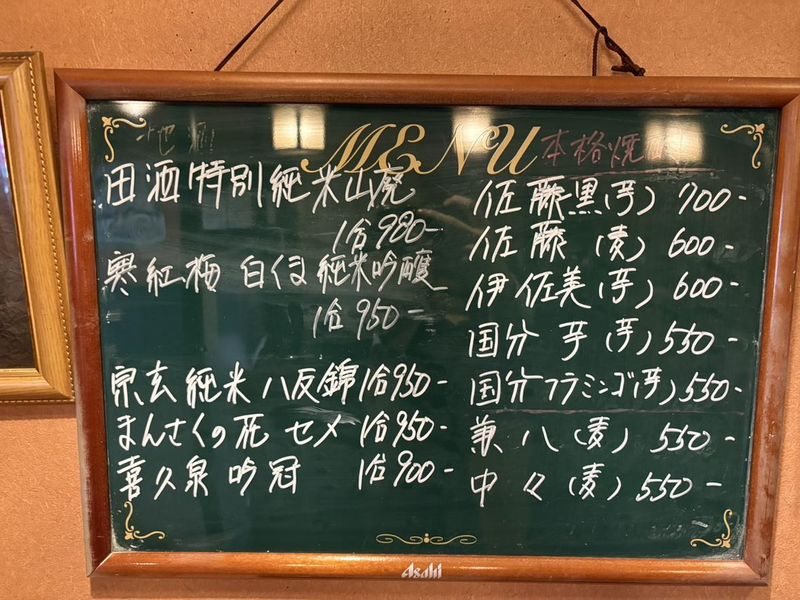 地酒
MENU
本格焼酎
田酒 特別純米山廃
1合 980-
寒紅梅 白くま 純米吟醸
1合 950-
宗玄 純米 八反錦 1合 950-
まんさくの花 セメ 1合 950-
喜久泉 吟冠 1合 900-
佐藤黒(芋) 700-
佐藤 (麦) 600-
伊佐美(芋) 600-
国分 芋 (芋) 550-
国分フラミンゴ(芋) 550-
兼八(麦) 550-
中々(麦) 550-
Asahi